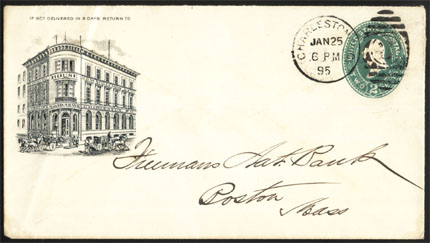 IF NOT DELIVERED IN 5 DAYS RETURN TO
CHARLESTON
JAN 25
6 PM
95
UNITED STATES POSTAGE
TWO 2
Freemans Nat. Bank
Boston
Mass